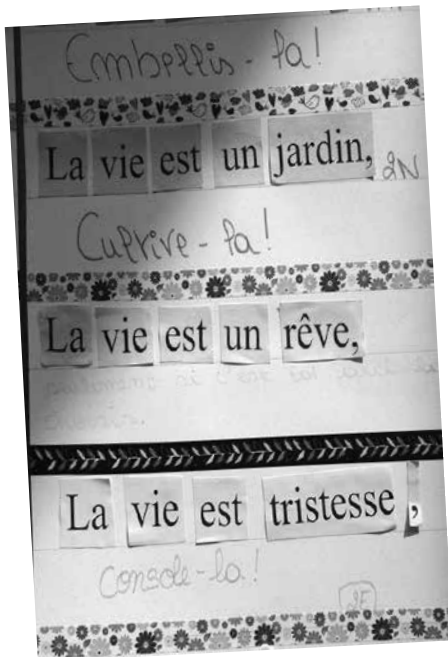 Embellis-la!
La vie est un jardin, 2N
Cultive-la!
La vie est un rêve,
si c'est toi
La vie est tristesse,
Console-la!
2E